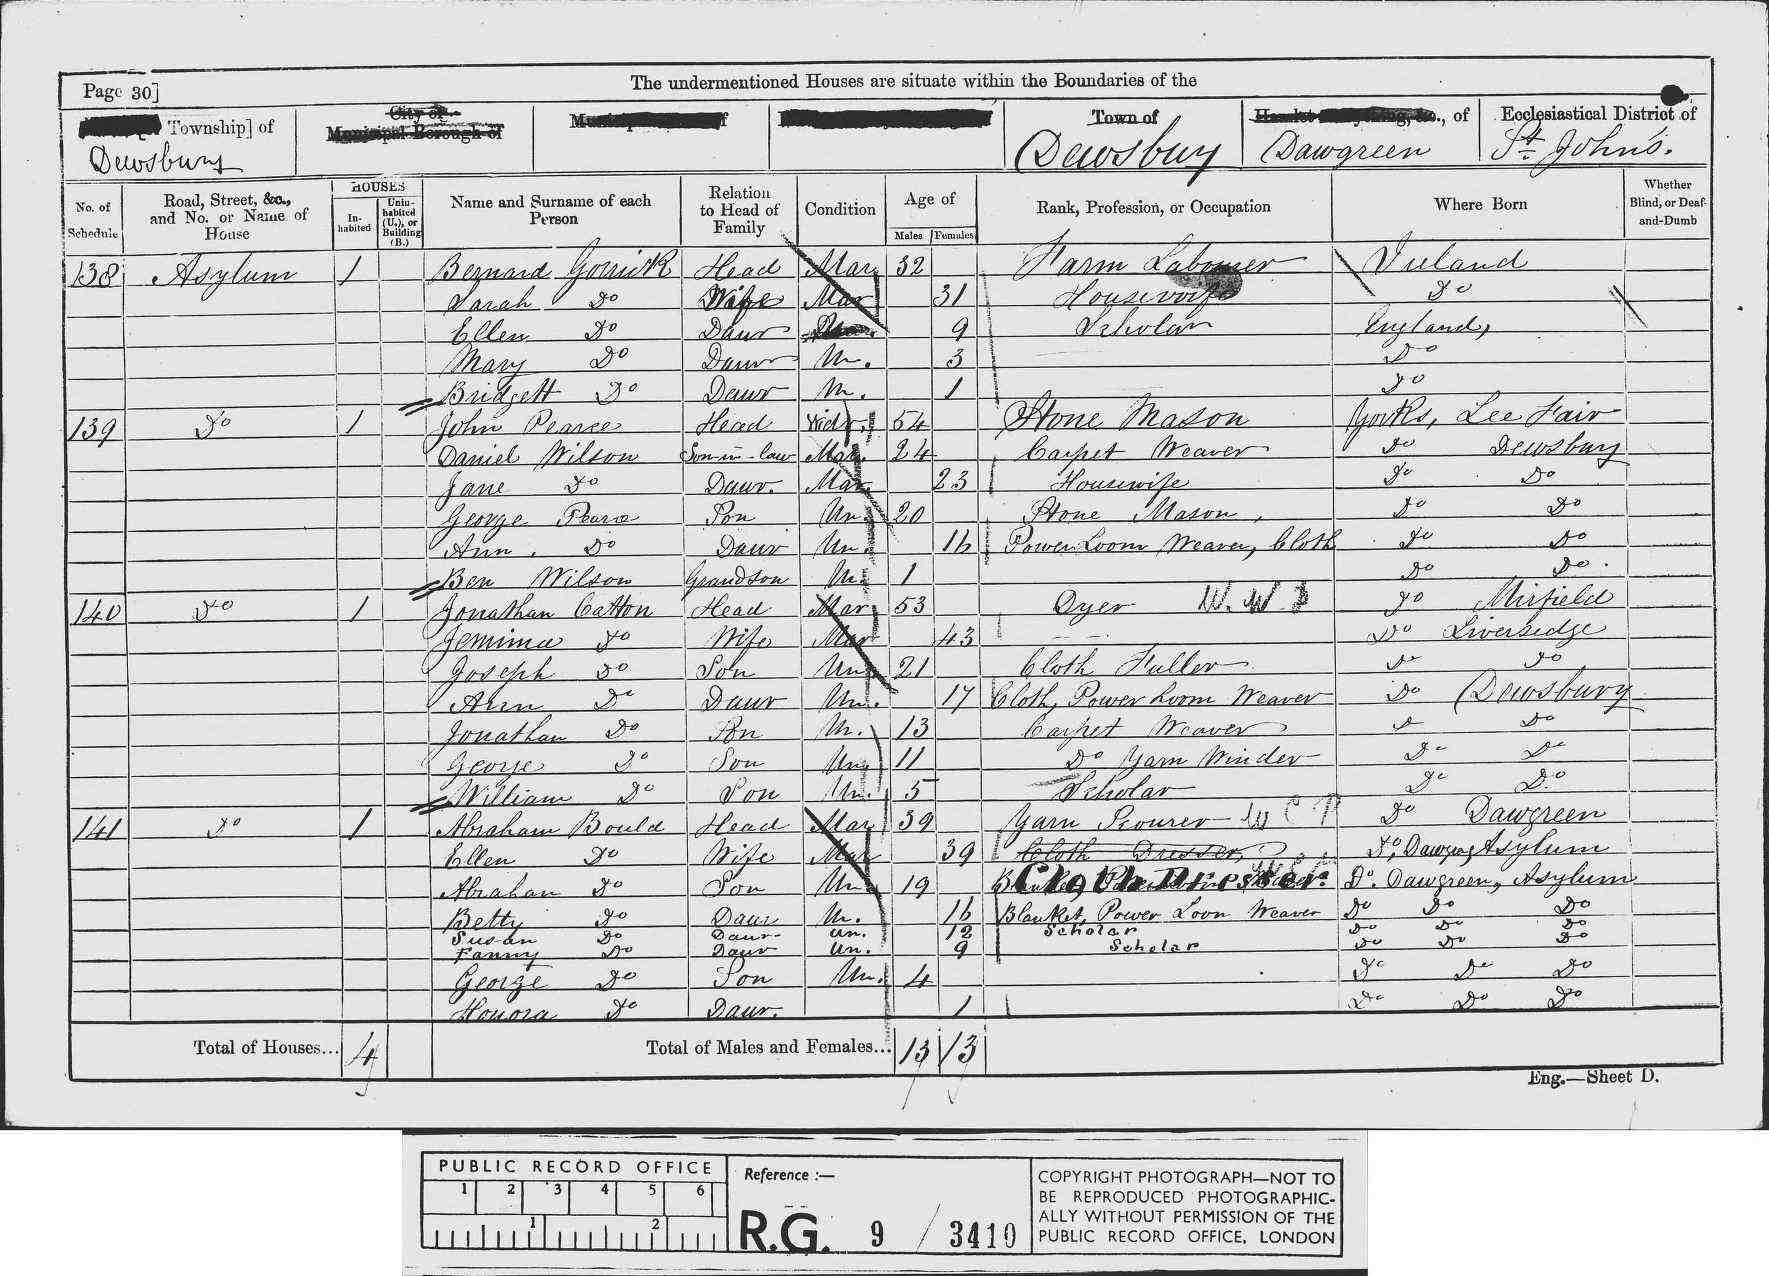 The undermentioned Houses are situate within the Boundaries of the
Page 30]
Township] of Dewsbury
City of
Municipal Borough of
Town of Dewsbury
&c., of Dawgreen
Ecclesiastical District of St John's.
No. of Schedule
Road, Street, &c., and No. or Name of House
HOUSES
In-habited
Unin-habited (U.), or Building (B.)
Name and Surname of each Person
Relation to Head of Family
Condition
Age of
Males
Females
Rank, Profession, or Occupation
Where Born
Whether Blind, or Deaf-and-Dumb
138 Asylum 1 Bernard Gorrick Head Mar 32 Farm Labourer Ireland
Sarah Do Wife Mar 31 Housewife Do
Ellen Do Daur 9 Scholar England,
Mary Do Daur Un. 3 Do
Bridgett Do Daur Un. 1 Do
139 Do 1 John Pearce Head Widr. 54 Stone Mason Yorks, Lee Fair
Daniel Wilson Son-in-law Mar. 24 Carpet Weaver Do Dewsbury
Jane Do Daur. Mar 23 Housewife Do Do
George Pearce Son Un. 20 Stone Mason, Do Do
Ann. Do Daur Un. 16 Power Loom Weaver, Cloth Do Do
Ben Wilson Grandson Un 1 Do Do.
140 Do 1 Jonathan Catton Head Mar 53 Dyer Do Mirfield
Jemima Do Wife Mar 43 Do Liversedge
Joseph Do Son Un 21 Cloth Fuller Do Do
Ann Do Daur Un. 17 Cloth, Power Loom Weaver Do Dewsbury
Jonathan Do Son Un. 13 Carpet Weaver Do Do
George Do Son Un. 11 Do Yarn Winder Do Do
William Do Son Un. 5 Scholar Do Do.
141 Do 1 Abraham Bould Head Mar 39 Yarn Scourer Do Dawgreen
Ellen Do Wife Mar 39 Cloth Dresser, Do, Asylum
Abraham Do Son Un 19 Cloth Dresser. Do. Dawgreen, Asylum
Betty Do Daur Un. 16 Blanket, Power Loom Weaver Do Do Do
Susan Do Daur. Un. 12 Scholar Do Do Do
Fanny Do Daur Un. 9 Scholar Do Do Do
George Do Son Un. 4 Do Do Do
Honora Do Daur. 1 Do Do Do
Total of Houses... 4 Total of Males and Females... 13 13
Eng.—Sheet D.
PUBLIC RECORD OFFICE
1 2 3 4 5 6
1 2
Reference :—
R.G. 9 / 3410
COPYRIGHT PHOTOGRAPH—NOT TO
BE REPRODUCED PHOTOGRAPHIC-
ALLY WITHOUT PERMISSION OF THE
PUBLIC RECORD OFFICE, LONDON